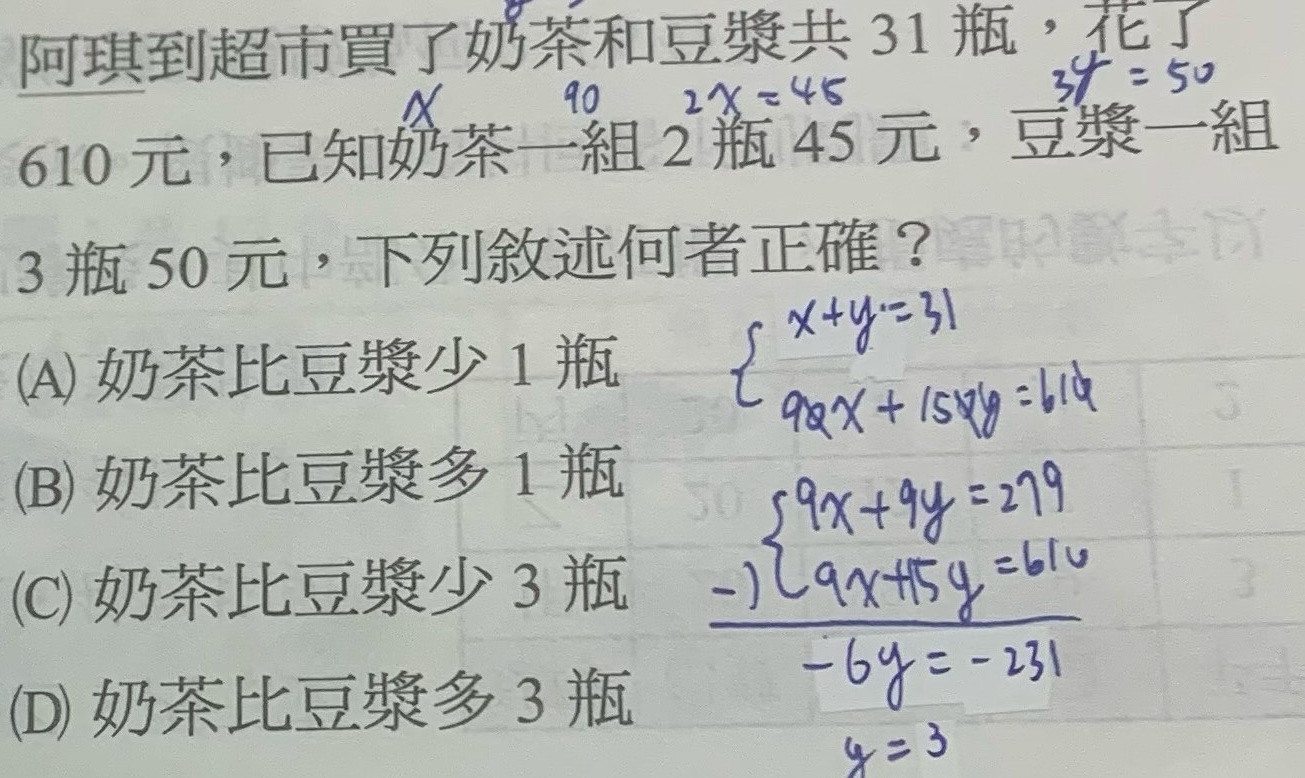 阿琪到超市買了奶茶和豆漿共 31 瓶，花了
x 90 2x=45 3y=50
610 元，已知奶茶一組 2 瓶 45 元，豆漿一組
3 瓶 50 元，下列敘述何者正確？
x+y=31
(A) 奶茶比豆漿少 1 瓶
(B) 奶茶比豆漿多 1 瓶
9x+9y=279
(C) 奶茶比豆漿少 3 瓶
-) 9x+15y=610
-6y=-231
(D) 奶茶比豆漿多 3 瓶
y=3